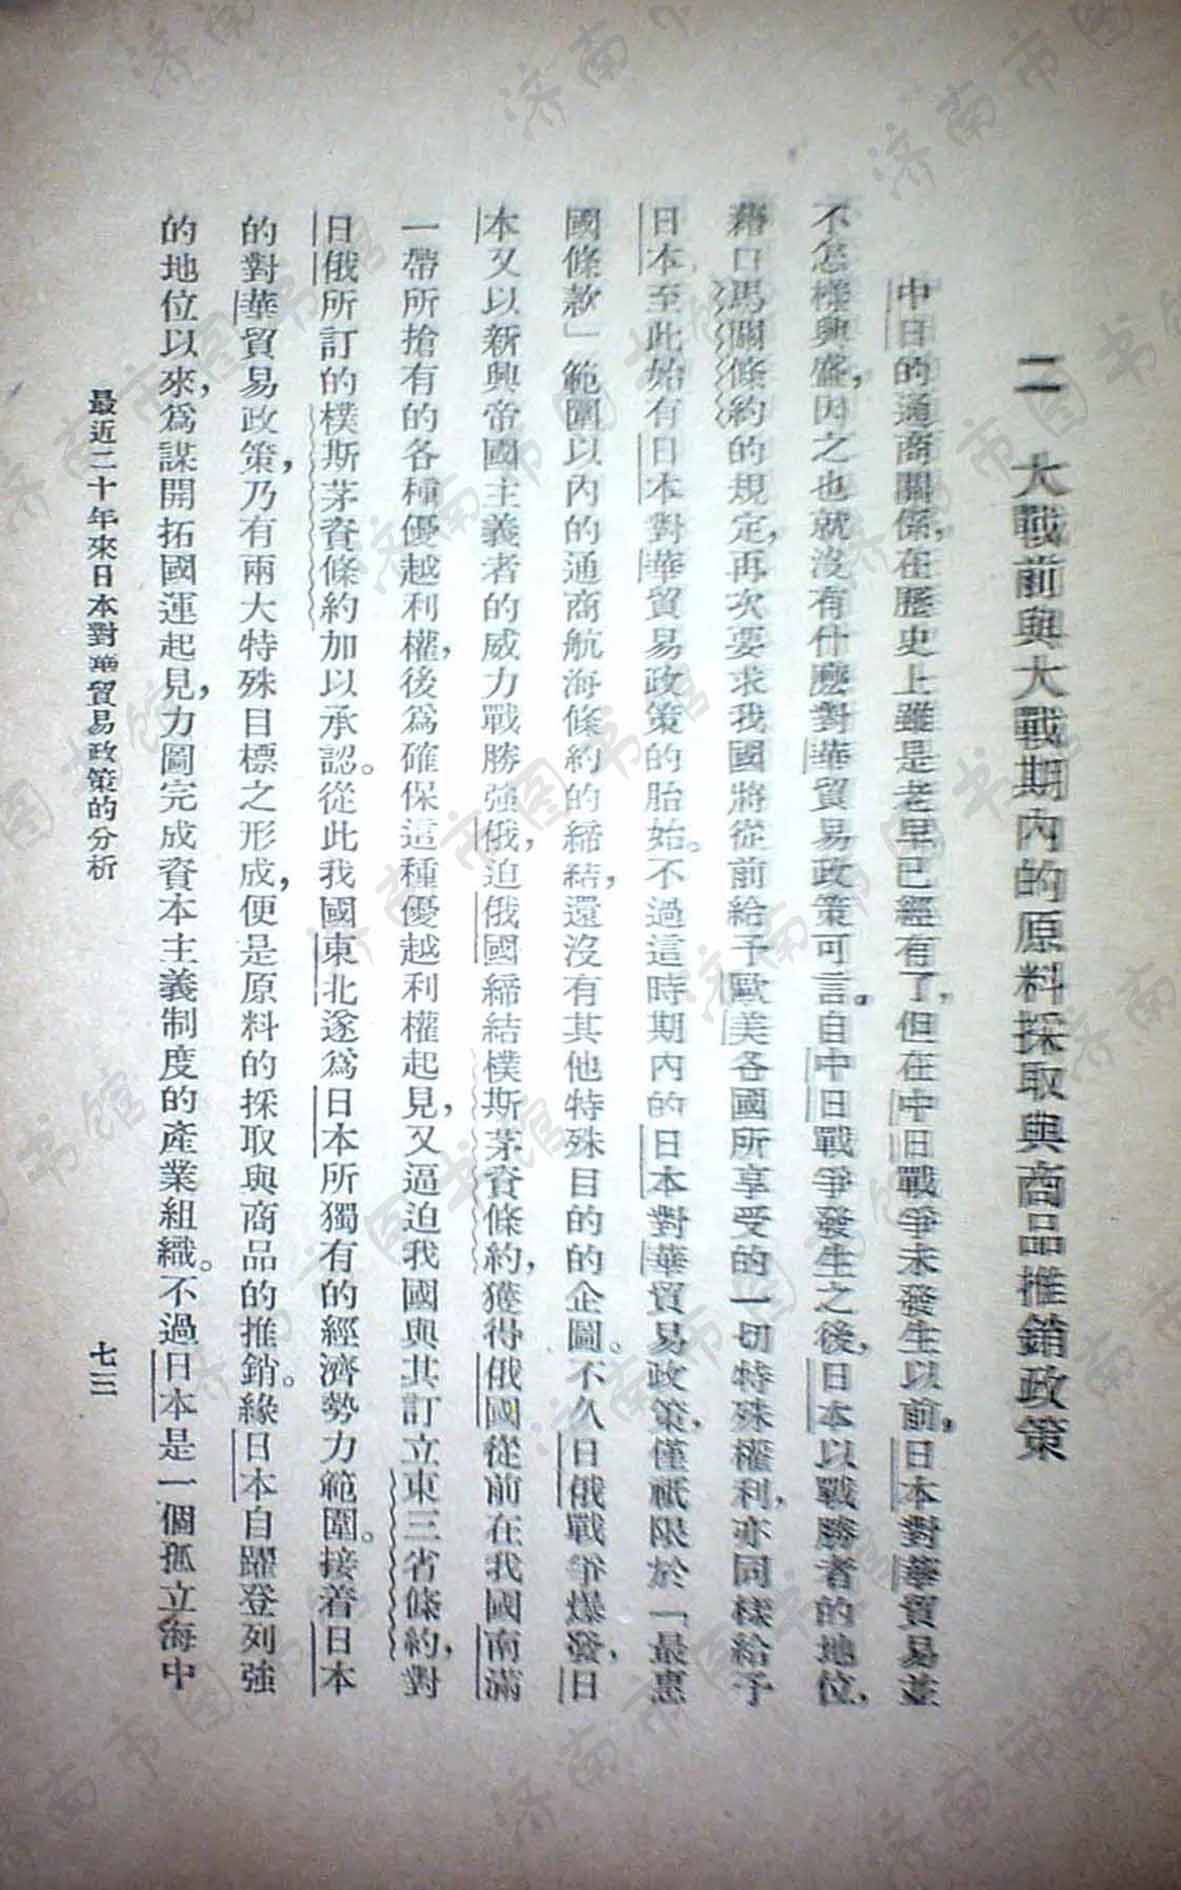 二　大戰前與大戰期內的原料採取與商品推銷政策
中日的通商關係，在歷史上雖是老早已經有了，但在中日戰爭未發生以前，日本對華貿易並
不怎樣興盛，因之也就沒有什麼對華貿易政策可言。自中日戰爭發生之後，日本以戰勝者的地位，
藉口馬關條約的規定，再次要求我國將從前給予歐美各國所享受的一切特殊權利，亦同樣給予
日本至此始有日本對華貿易政策的胎始。不過這時期內的日本對華貿易政策，僅祇限於「最惠
國條款」範圍以內的通商航海條約的締結，還沒有其他特殊目的的企圖。不久日俄戰爭爆發，日
本又以新興帝國主義者的威力戰勝強俄，迫俄國締結樸斯茅資條約，獲得俄國從前在我國南滿
一帶所搶有的各種優越利權，後爲確保這種優越利權起見，又逼迫我國與其訂立東三省條約，對
日俄所訂的樸斯茅資條約加以承認。從此我國東北遂爲日本所獨有的經濟勢力範圍。接着日本
的對華貿易政策，乃有兩大特殊目標之形成，便是原料的採取與商品的推銷。緣日本自躍登列強
的地位以來，爲謀開拓國運起見，力圖完成資本主義制度的產業組織。不過日本是一個孤立海中
最近二十年來日本對華貿易政策的分析
七三
济南市图书馆